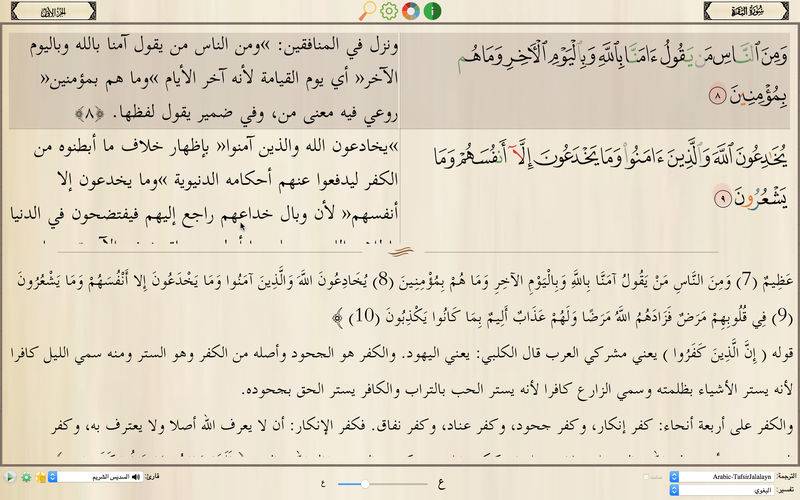 الجزء الأول
سورة البقرة
وَمِنَ ٱلنَّاسِ مَن يَقُولُ ءَامَنَّا بِٱللَّهِ وَبِٱلْيَوْمِ ٱلْأَخِرِ وَمَا هُم
بِمُؤْمِنِينَ ٨
يُخَٰدِعُونَ ٱللَّهَ وَٱلَّذِينَ ءَامَنُوا۟ وَمَا يَخْدَعُونَ إِلَّآ أَنفُسَهُمْ وَمَا
يَشْعُرُونَ ٩
ونزل في المنافقين: »ومن الناس من يقول آمنا بالله وباليوم
الآخر« أي يوم القيامة لأنه آخر الأيام »وما هم بمؤمنين«
روعي فيه معنى من، وفي ضمير يقول لفظها. ﴿٨﴾
»يخادعون الله والذين آمنوا« بإظهار خلاف ما أبطنوه من
الكفر ليدفعوا عنهم أحكامه الدنيوية »وما يخدعون إلا
أنفسهم« لأن وبال خداعهم راجع إليهم فيفتضحون في الدنيا
عَظِيمٌ (7) وَمِنَ النَّاسِ مَنْ يَقُولُ آمَنَّا بِاللَّهِ وَبِالْيَوْمِ الآخِرِ وَمَا هُمْ بِمُؤْمِنِينَ (8) يُخَادِعُونَ اللَّهَ وَالَّذِينَ آمَنُوا وَمَا يَخْدَعُونَ إِلا أَنْفُسَهُمْ وَمَا يَشْعُرُونَ
(9) فِي قُلُوبِهِمْ مَرَضٌ فَزَادَهُمُ اللَّهُ مَرَضًا وَلَهُمْ عَذَابٌ أَلِيمٌ بِمَا كَانُوا يَكْذِبُونَ (10) ﴾
قوله ( إِنَّ الَّذِينَ كَفَرُوا ) يعني مشركي العرب قال الكلبي: يعني اليهود. والكفر هو الجحود وأصله من الكفر وهو الستر ومنه سمي الليل كافرا
لأنه يستر الأشياء بظلمته وسمي الزارع كافرا لأنه يستر الحب بالتراب والكافر يستر الحق بجحوده.
والكفر على أربعة أنحاء: كفر إنكار، وكفر جحود، وكفر عناد، وكفر نفاق. فكفر الإنكار: أن لا يعرف الله أصلا ولا يعترف به، وكفر
الترجمة: Arabic-TafsirJalalayn
تفسير: البغوي
ع ع
قارئ: السديس الشريم